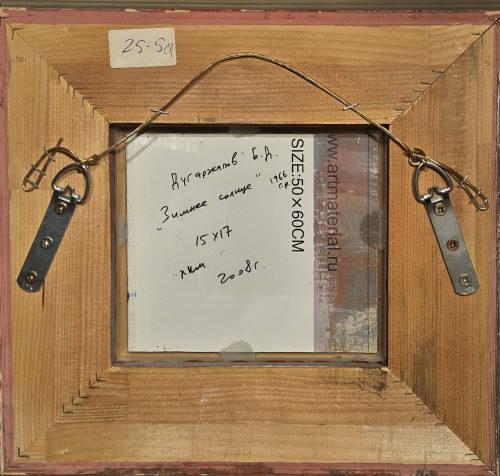 25-5а
Дугаржапов Б.Д.
"Зимнее солнце" 1966 г.р.
15 x 17
хкм
2008г.
SIZE:50×60CM
www.artmaterial.ru